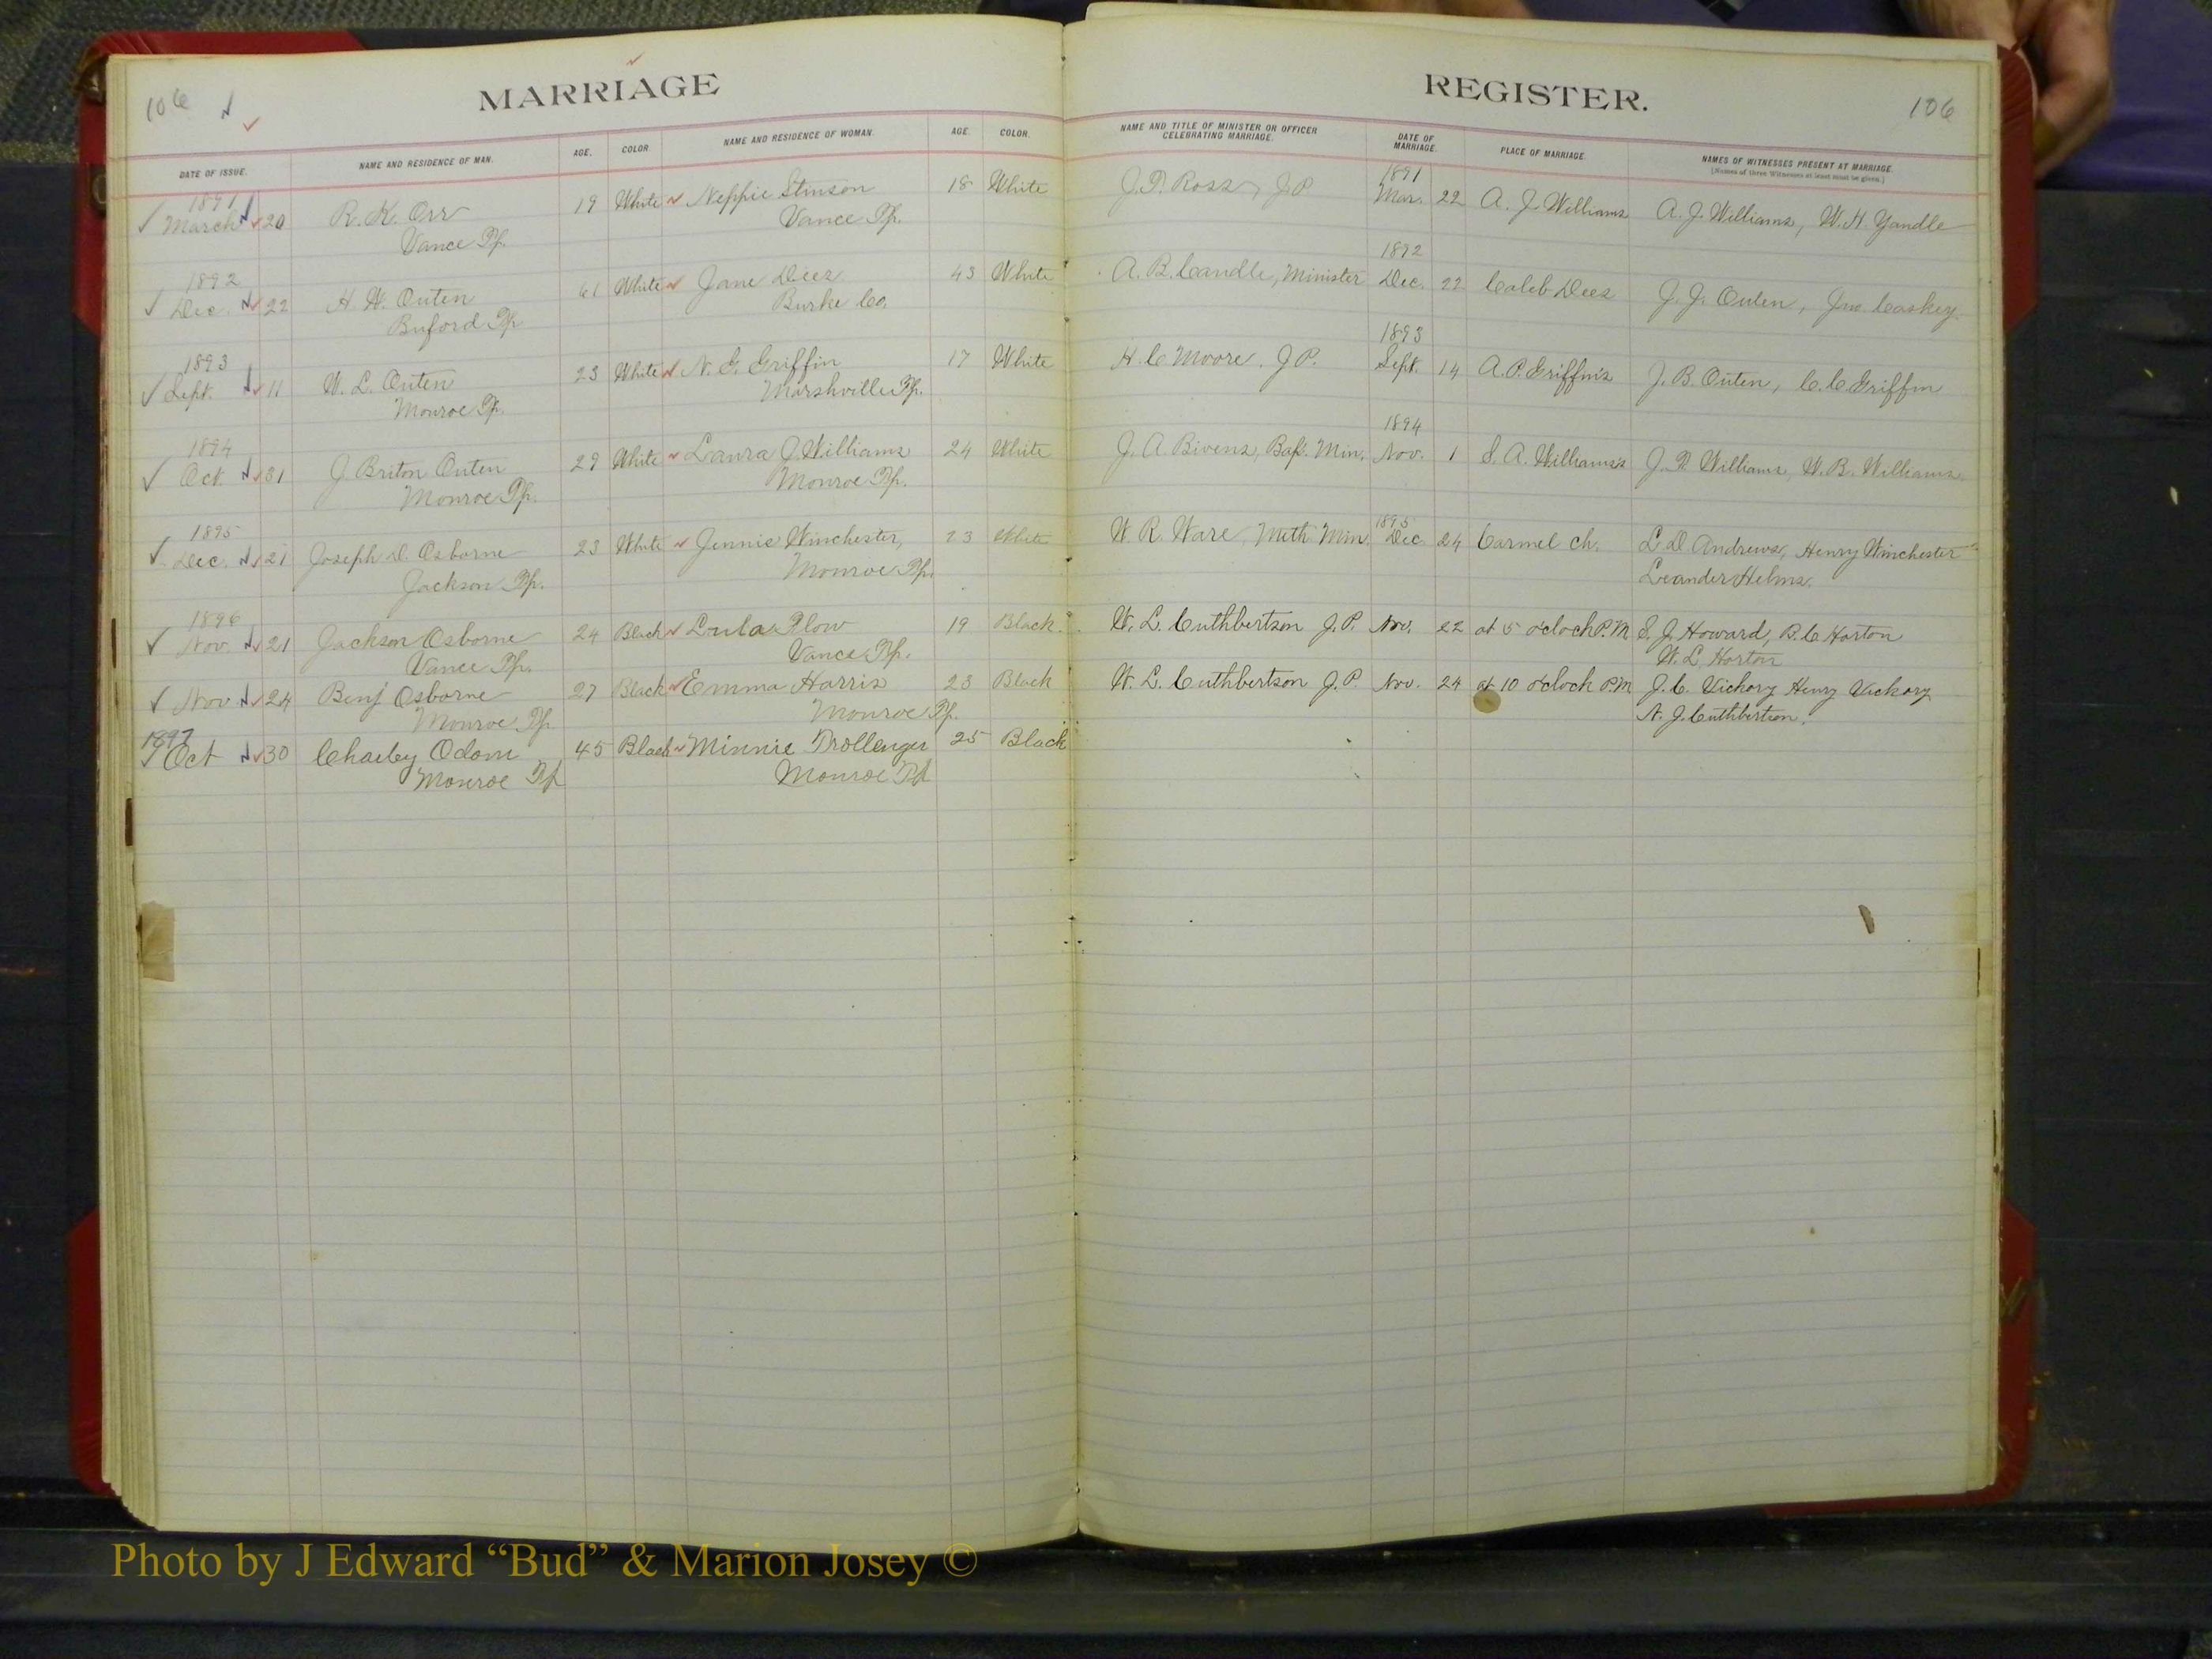 106
MARRIAGE
REGISTER.
106
DATE OF ISSUE. NAME AND RESIDENCE OF MAN. AGE. COLOR. NAME AND RESIDENCE OF WOMAN. AGE. COLOR. NAME AND TITLE OF MINISTER OR OFFICER CELEBRATING MARRIAGE. DATE OF MARRIAGE. PLACE OF MARRIAGE. NAMES OF WITNESSES PRESENT AT MARRIAGE.
[Names of three Witnesses at least must be given.]
1891 1891
March 20 R. K. Orr 19 White Neppie Stinson 18 White J. P. Ross, J P Mar. 22 A. J. Williams A. J. Williams, W. H. Yandle
Vance Tp. Vance Tp.
1892 1892
Dec. 22 H. W. Outen 61 White Jane Dees 43 White A. B. Caudle, Minister Dec. 22 Caleb Dees J. J. Outen, Jno. Caskey.
Buford Tp Burke Co,
1893 1893
Sept. 11 W. L. Outen 23 White N. E. Griffin 17 White H. C Moore. J P. Sept. 14 A. P. Griffin's J. B. Outen, C. C Griffin
Monroe Tp. Marshville Tp.
1894 1894
Oct. 31 J. Briton Outen 29 White Laura J. Williams 24 White J. A Bivens, Bap. Min. Nov. 1 S. A. Williams's J. P. Williams, W. B. Williams.
Monroe Tp. Monroe Tp.
1895 1895
Dec. 21 Joseph D. Osborne 23 White Jennie Winchester, 23 White W. R. Ware, Meth. Min. Dec. 24 Carmel ch. L. D. Andrews, Henry Winchester
Jackson Tp. Monroe Tp. Leander Helms.
1896
Nov. 21 Jackson Osborne 24 Black Lula Plow 19 Black. W. L. Cuthbertson J. P. Nov. 22 at 5 oclock P. M S. J. Howard, B. C Horton
Vance Tp. Vance Tp. W. L. Horton
Nov 24 Benj Osborne 27 Black Emma Harris 23 Black W. L. Cuthbertson J. P. Nov. 24 at 10 oclock P. M J. C. Vickory Henry Vickory
Monroe Tp Monroe Tp. N. J. Cuthbertson.
1897
Oct 30 Charley Odom 45 Black Minnie Trollenger 25 Black
Monroe Tp Monroe Tp
Photo by J Edward “Bud” & Marion Josey ©